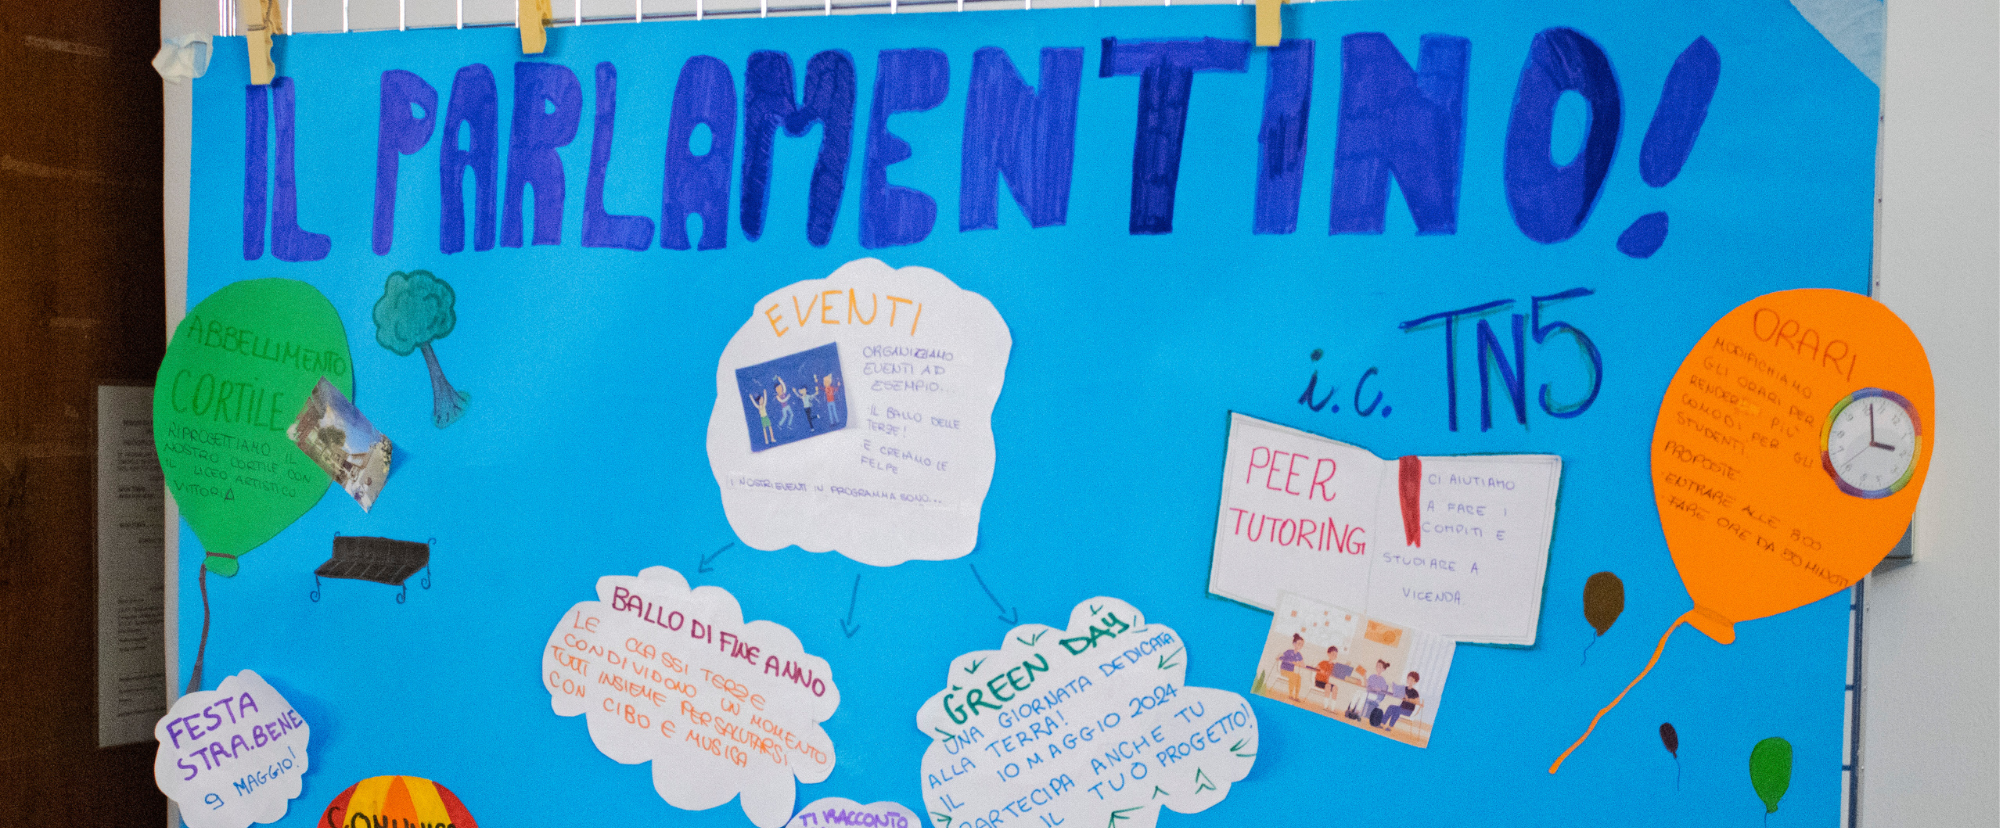 IL PARLAMENTINO!
i.c. TN5
ABBELLIMENTO
CORTILE
RIPROGETTIAMO IL
NOSTRO CORTILE CON
IL LICEO ARTISTICO
VITTORIA
EVENTI
ORGANIZZIAMO
EVENTI AD
ESEMPIO...
IL BALLO DELLE
TERZE!
E CREIAMO LE
FELPE
I NOSTRI EVENTI IN PROGRAMMA SONO...
PEER
TUTORING
CI AIUTIAMO
A FARE I
COMPITI E
STUDIARE A
VICENDA
ORARI
MODIFICHIAMO
GLI ORARI PER
RENDERLI PIÙ
COMODI PER GLI
STUDENTI.
PROPOSTE
ENTRARE ALLE 8:00
FARE ORE DA 50 MINUTI
BALLO DI FINE ANNO
LE CLASSI TERZE
CONDIVIDONO UN MOMENTO
TUTTI INSIEME PER SALUTARSI
CON CIBO E MUSICA
GREEN DAY
UNA GIORNATA DEDICATA
ALLA TERRA!
IL 10 MAGGIO 2024
PARTECIPA ANCHE TU
IL TUO PROGETTO!
FESTA
STRA.BENE
9 MAGGIO!
TI RACCONTO